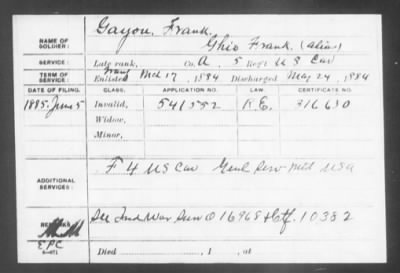 NAME OF SOLDIER: Gayon, Frank.
Ghio Frank. (alias)
SERVICE: Late rank, Co. A, 5 Reg't U S Cav
TERM OF SERVICE: Enlisted Mch 17, 1884 Discharged May 24, 1884
DATE OF FILING. CLASS. APPLICATION NO. LAW. CERTIFICATE NO.
1885. June 5 Invalid, 541552 316630
Widow,
Minor,
ADDITIONAL SERVICES: F 4 US Cav Genl Serv USA
REMARKS: See Ind War Surv O 16968 Ctf. 10382
EPC
Died , 1 , at